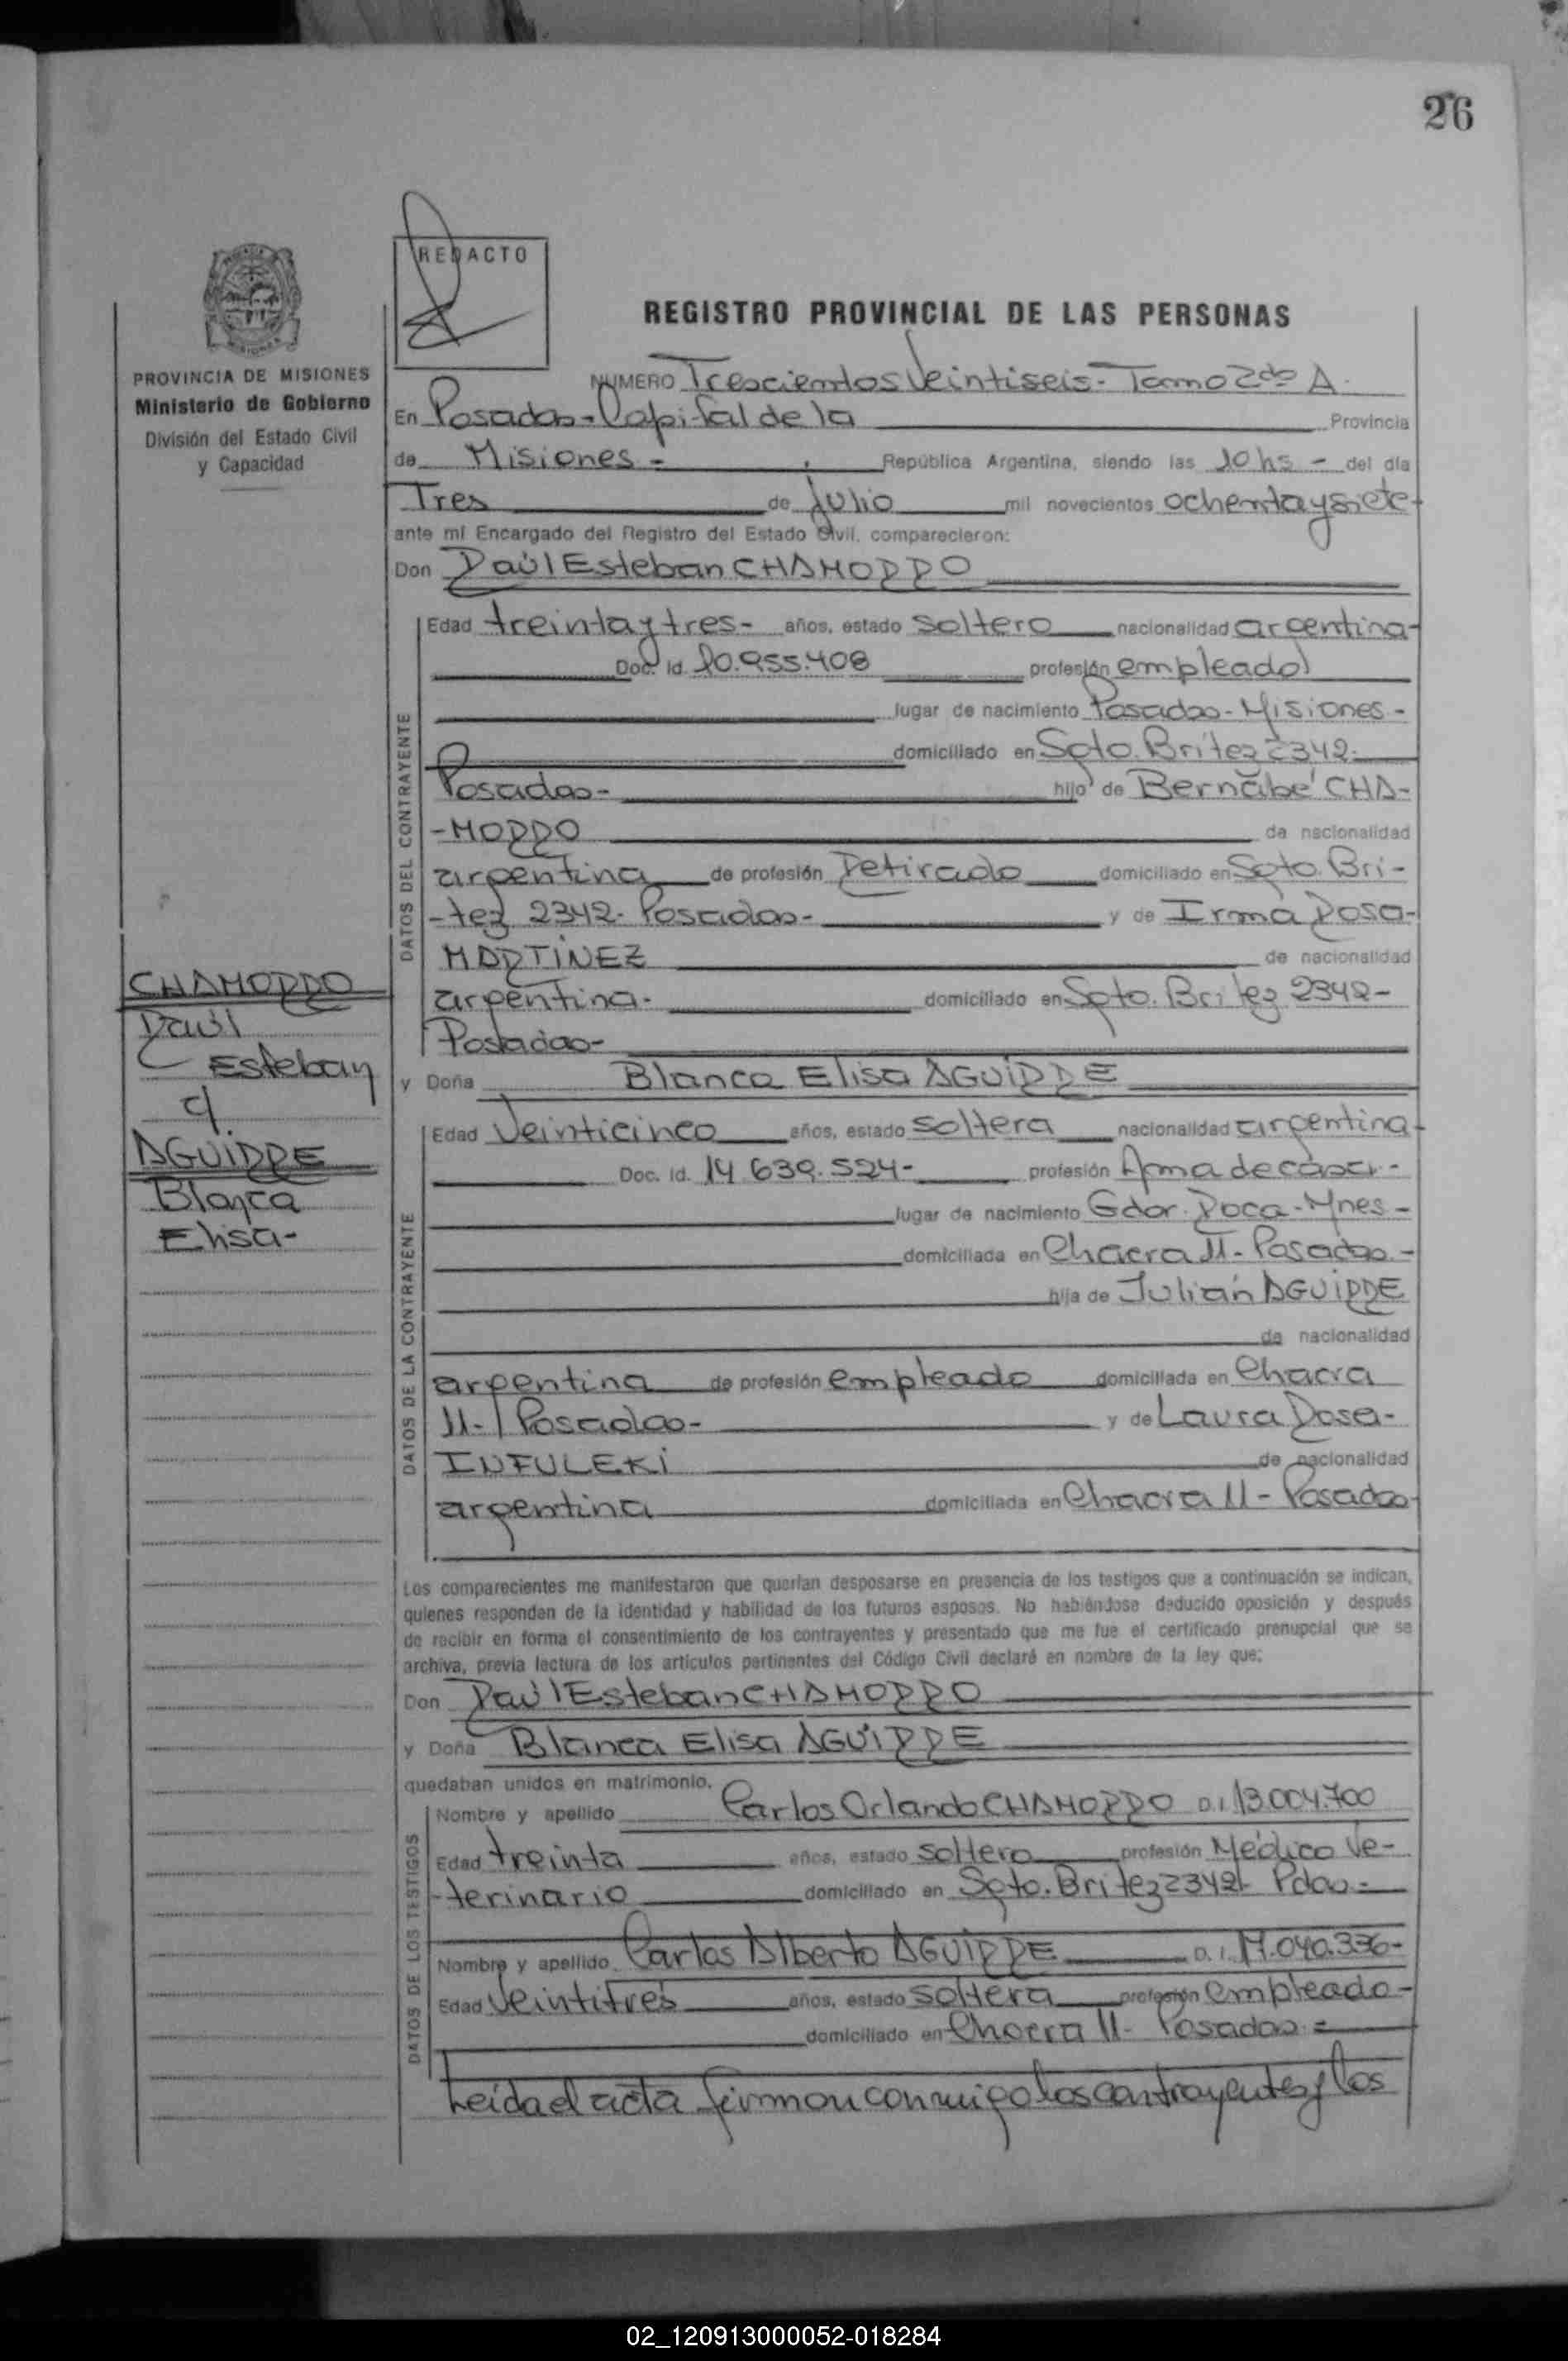 26
REDACTO
REGISTRO PROVINCIAL DE LAS PERSONAS
PROVINCIA DE MISIONES
Ministerio de Gobierno
División del Estado Civil
y Capacidad
NUMERO Trescientos Veintiseis - Tomo 2do A.
En Posadas - Capital de la Provincia
de Misiones - , República Argentina, siendo las 10 hs - del día
Tres de Julio mil novecientos ochenta y siete -
ante mí Encargado del Registro del Estado Civil, comparecieron:
Don Raúl Esteban CHAMORRO
DATOS DEL CONTRAYENTE
Edad treinta y tres - años, estado soltero nacionalidad argentina -
Doc. Id. 10.955.408 profesión empleado
lugar de nacimiento Posadas - Misiones -
domiciliado en Sgto. Britez 2342.
Posadas - hijo de Bernabé CHA-
-MORRO de nacionalidad
argentina de profesión Retirado domiciliado en Sgto. Bri-
-tez 2342. Posadas - y de Irma Rosa -
MARTINEZ de nacionalidad
argentina. domiciliado en Sgto. Britez 2342 -
Posadas -
CHAMORRO
Raúl
Esteban
c/.
AGUIRRE
Blanca
Elisa -
y Doña Blanca Elisa AGUIRRE
DATOS DE LA CONTRAYENTE
Edad Veinticinco años, estado soltera nacionalidad argentina -
Doc. Id. 14.639.524 - profesión Ama de casa. -
lugar de nacimiento Gdor. Roca - Mnes -
domiciliada en Chacra 11 - Posadas. -
hija de Julián AGUIRRE
de nacionalidad
argentina de profesión empleado domiciliada en Chacra
11 - Posadas - y de Laura Rosa -
INFULEKI de nacionalidad
argentina domiciliada en Chacra 11 - Posadas -
Los comparecientes me manifestaron que querían desposarse en presencia de los testigos que a continuación se indican,
quienes responden de la identidad y habilidad de los futuros esposos. No habiéndose deducido oposición y después
de recibir en forma el consentimiento de los contrayentes y presentado que me fue el certificado prenupcial que se
archiva, previa lectura de los artículos pertinentes del Código Civil declaré en nombre de la ley que:
Don Raúl Esteban CHAMORRO
y Doña Blanca Elisa AGUIRRE
quedaban unidos en matrimonio.
DATOS DE LOS TESTIGOS
Nombre y apellido Carlos Orlando CHAMORRO D.I. 13.004.700
Edad treinta años, estado soltero profesión Médico Ve-
-terinario domiciliado en Sgto. Britez 2342 - Pdas -
Nombre y apellido Carlos Alberto AGUIRRE D.I. 17.040.336 -
Edad Veintitrés años, estado soltera profesión empleado -
domiciliado en Chacra 11 - Posadas =
Leida el acta firman conmigo los contrayentes y los
02_120913000052-018284